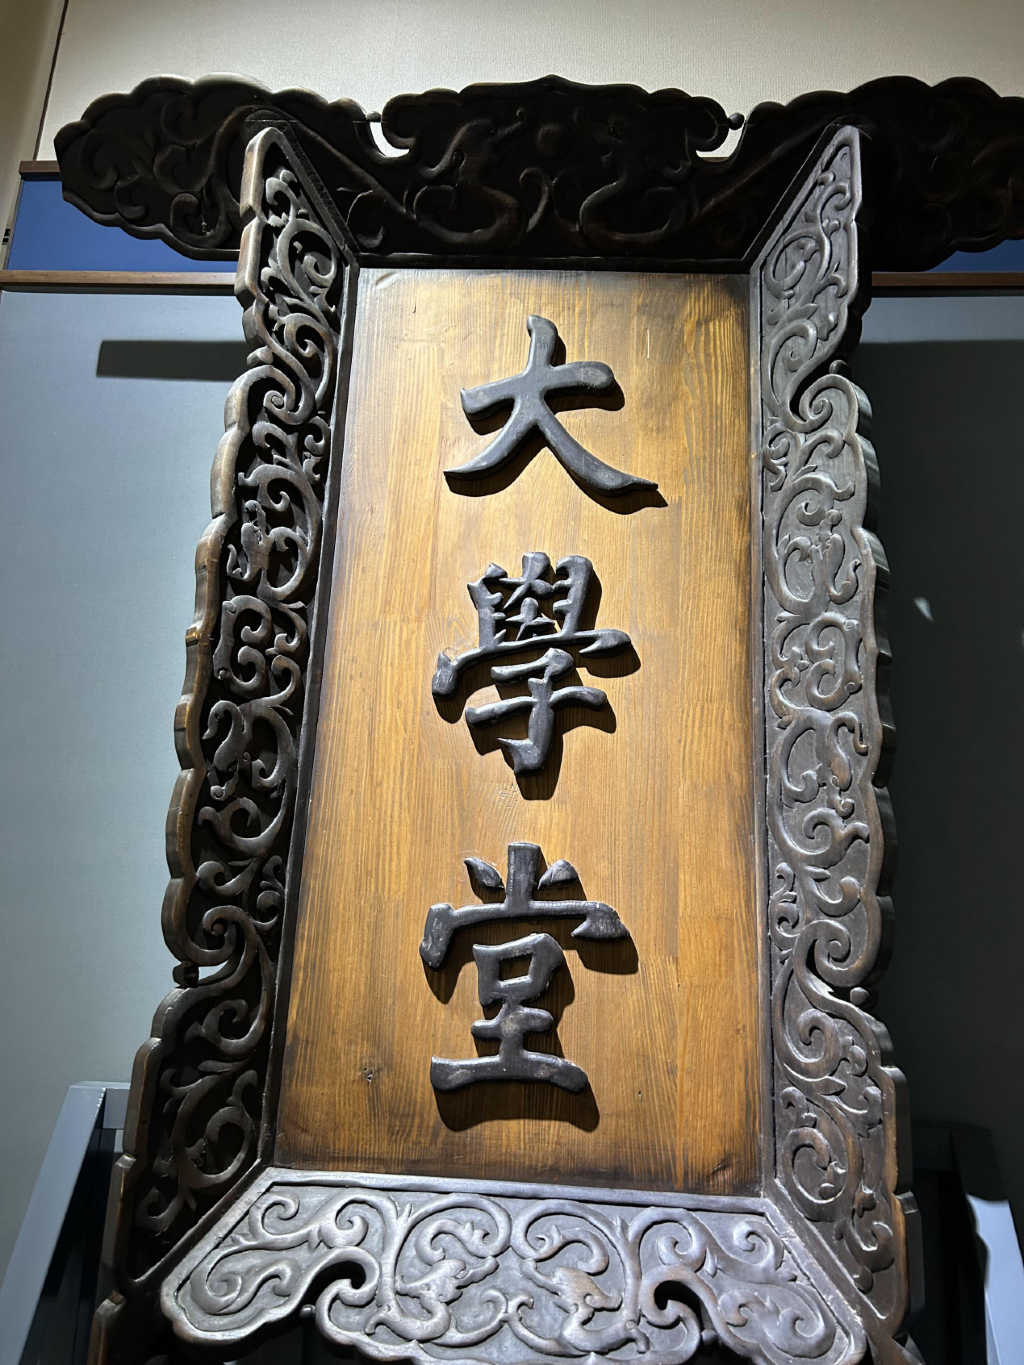 大學堂